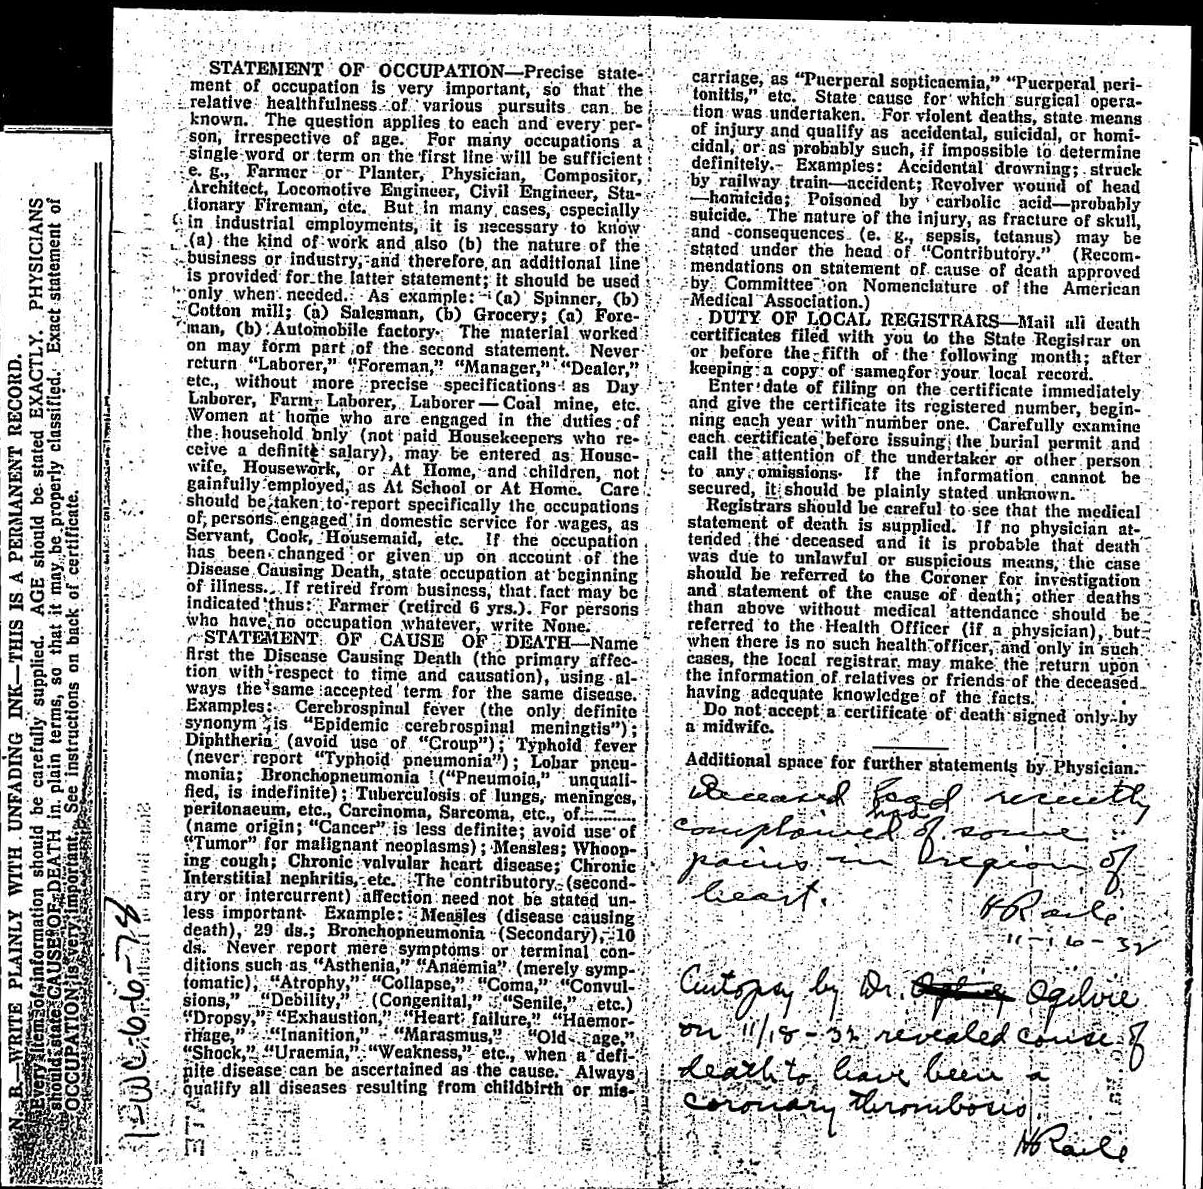 N. B.—WRITE PLAINLY WITH UNFADING INK—THIS IS A PERMANENT RECORD.
Every item of information should be carefully supplied. AGE should be stated EXACTLY. PHYSICIANS
should state CAUSE OF DEATH in plain terms, so that it may be properly classified. Exact statement of
OCCUPATION is very important. See instructions on back of certificate.
STATEMENT OF OCCUPATION—Precise state-
ment of occupation is very important, so that the
relative healthfulness of various pursuits can be
known. The question applies to each and every per-
son, irrespective of age. For many occupations a
single word or term on the first line will be sufficient
e. g., Farmer or Planter, Physician, Compositor,
Architect, Locomotive Engineer, Civil Engineer, Sta-
tionary Fireman, etc. But in many cases, especially
in industrial employments, it is necessary to know
(a) the kind of work and also (b) the nature of the
business or industry, and therefore an additional line
is provided for the latter statement; it should be used
only when needed. As example: (a) Spinner, (b)
Cotton mill; (a) Salesman, (b) Grocery; (a) Fore-
man, (b) Automobile factory. The material worked
on may form part of the second statement. Never
return "Laborer," "Foreman," "Manager," "Dealer,"
etc., without more precise specifications as Day
Laborer, Farm Laborer, Laborer—Coal mine, etc.
Women at home who are engaged in the duties of
the household only (not paid Housekeepers who re-
ceive a definite salary), may be entered as House-
wife, Housework, or At Home, and children, not
gainfully employed, as At School or At Home. Care
should be taken to report specifically the occupations
of persons engaged in domestic service for wages, as
Servant, Cook, Housemaid, etc. If the occupation
has been changed or given up on account of the
Disease Causing Death, state occupation at beginning
of illness. If retired from business, that fact may be
indicated thus: Farmer (retired 6 yrs.). For persons
who have no occupation whatever, write None.
STATEMENT OF CAUSE OF DEATH—Name
first the Disease Causing Death (the primary affec-
tion with respect to time and causation), using al-
ways the same accepted term for the same disease.
Examples: Cerebrospinal fever (the only definite
synonym is "Epidemic cerebrospinal meningtis");
Diphtheria (avoid use of "Croup"); Typhoid fever
(never report "Typhoid pneumonia"); Lobar pneu-
monia; Bronchopneumonia ("Pneumoia," unquali-
fied, is indefinite); Tuberculosis of lungs, meninges,
peritonaeum, etc., Carcinoma, Sarcoma, etc., of........
(name origin; "Cancer" is less definite; avoid use of
"Tumor" for malignant neoplasms); Measles; Whoop-
ing cough; Chronic valvular heart disease; Chronic
Interstitial nephritis, etc. The contributory (second-
ary or intercurrent) affection need not be stated un-
less important. Example: Measles (disease causing
death), 29 ds.; Bronchopneumonia (Secondary), 10
ds. Never report mere symptoms or terminal con-
ditions such as "Asthenia," "Anaemia" (merely symp-
tomatic), "Atrophy," "Collapse," "Coma," "Convul-
sions," "Debility," (Congenital," "Senile," etc.)
"Dropsy," "Exhaustion," "Heart failure," "Haemor-
rhage," "Inanition," "Marasmus," "Old age,"
"Shock," "Uraemia," "Weakness," etc., when a defi-
nite disease can be ascertained as the cause. Always
qualify all diseases resulting from childbirth or mis-
carriage, as "Puerperal septicaemia," "Puerperal peri-
tonitis," etc. State cause for which surgical opera-
tion was undertaken. For violent deaths, state means
of injury and qualify as accidental, suicidal, or homi-
cidal, or as probably such, if impossible to determine
definitely. Examples: Accidental drowning; struck
by railway train—accident; Revolver wound of head
—homicide; Poisoned by carbolic acid—probably
suicide. The nature of the injury, as fracture of skull,
and consequences (e. g., sepsis, tetanus) may be
stated under the head of "Contributory." (Recom-
mendations on statement of cause of death approved
by Committee on Nomenclature of the American
Medical Association.)
DUTY OF LOCAL REGISTRARS—Mail all death
certificates filed with you to the State Registrar on
or before the fifth of the following month; after
keeping a copy of same for your local record.
Enter date of filing on the certificate immediately
and give the certificate its registered number, begin-
ning each year with number one. Carefully examine
each certificate before issuing the burial permit and
call the attention of the undertaker or other person
to any omissions. If the information cannot be
secured, it should be plainly stated unknown.
Registrars should be careful to see that the medical
statement of death is supplied. If no physician at-
tended the deceased and it is probable that death
was due to unlawful or suspicious means, the case
should be referred to the Coroner for investigation
and statement of the cause of death; other deaths
than above without medical attendance should be
referred to the Health Officer (if a physician), but
when there is no such health officer, and only in such
cases, the local registrar may make the return upon
the information of relatives or friends of the deceased
having adequate knowledge of the facts.
Do not accept a certificate of death signed only by
a midwife.
Additional space for further statements by Physician.
Deceased had recently
complained of some
pains in region of
heart.
11-16-32
Autopsy by Dr. Ogilvie
on 11/18-32 revealed cause of
death to have been a
coronary thrombosis